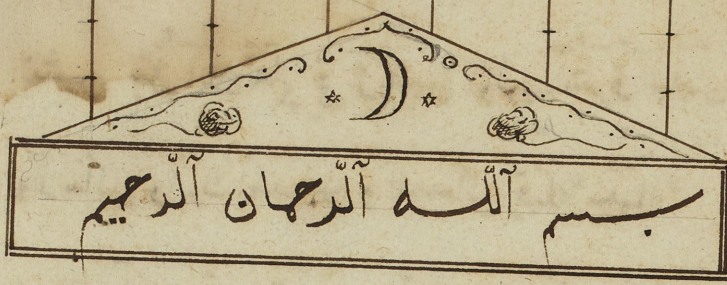 بسم آللّه آلّرحمان آلّرحيم